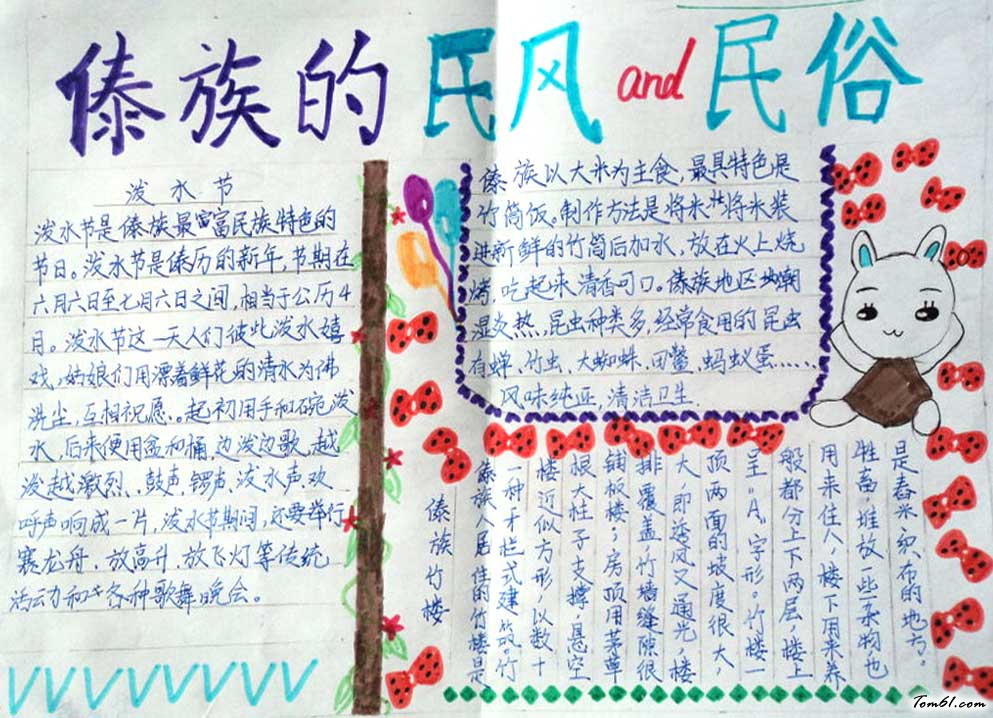 傣族的民风and民俗
泼水节
泼水节是傣族最富民族特色的
节日。泼水节是傣历的新年，节期在
六月六日至七月六日之间，相当于公历4
月。泼水节这一天人们彼此泼水嬉
戏，姑娘们用漂着鲜花的清水为佛
洗尘，互相祝愿。起初用手和碗泼
水，后来便用盆和桶，边泼边歌，越
泼越激烈，鼓声、锣声、泼水声、欢
呼声响成一片，泼水节期间，还要举行
赛龙舟、放高升、放飞灯等传统
活动和各种歌舞晚会。
傣族以大米为主食，最具特色是
竹筒饭。制作方法是将米将米装
进新鲜的竹筒后加水，放在火上烧
烤，吃起来清香可口。傣族地区潮
湿炎热，昆虫种类多，经常食用的昆虫
有蝉、竹虫、大蜘蛛、田鳖、蚂蚁蛋......
风味纯正，清洁卫生.
傣族竹楼
傣族人居住的竹楼是
一种干栏式建筑。竹
楼近似方形，以数十
根大柱子支撑，悬空
铺板楼；房顶用茅草
排覆盖，竹墙缝隙很
大，即透风又通光，楼
顶两面的坡度很大，
呈"A"字形。竹楼一
般都分上下两层，楼上
用来住人，楼下用来养
牲畜，堆放一些杂物也
是舂米、织布的地方。
Tom61.com